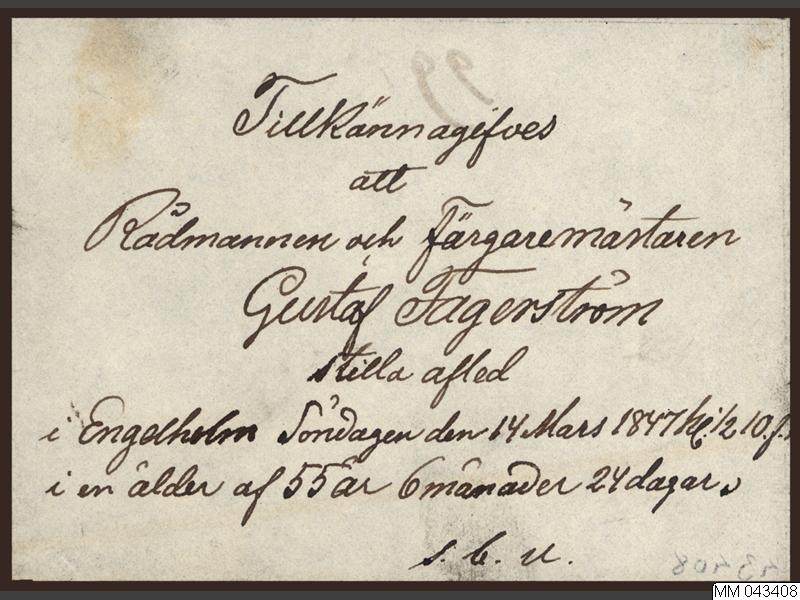 Tillkännagifves
att
Rådmannen och Färgaremästaren
Gustaf Fagerström
stilla afled
i Engelholm Söndagen den 14 Mars 1847 kl. 1/2 10 f.
i en ålder af 55 år 6 månader 24 dagar.
s. b. u.
43408
MM 043408